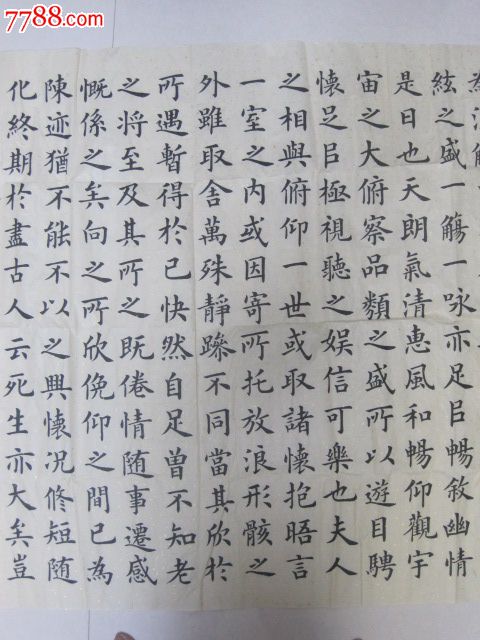 7788.com
絃之盛一觴一咏亦足㠯暢敘幽情
是日也天朗氣清惠風和暢仰觀宇
宙之大俯察品類之盛所以遊目騁
懷足㠯極視聽之娱信可樂也夫人
之相與俯仰一世或取諸懷抱晤言
一室之内或因寄所托放浪形骸之
外雖取舍萬殊靜躁不同當其欣於
所遇暫得於己快然自足曾不知老
之將至及其所之既倦情随事遷感
慨係之矣向之所欣俛仰之間已為
陳迹猶不能不以之興懷况修短随
化終期於盡古人云死生亦大矣豈